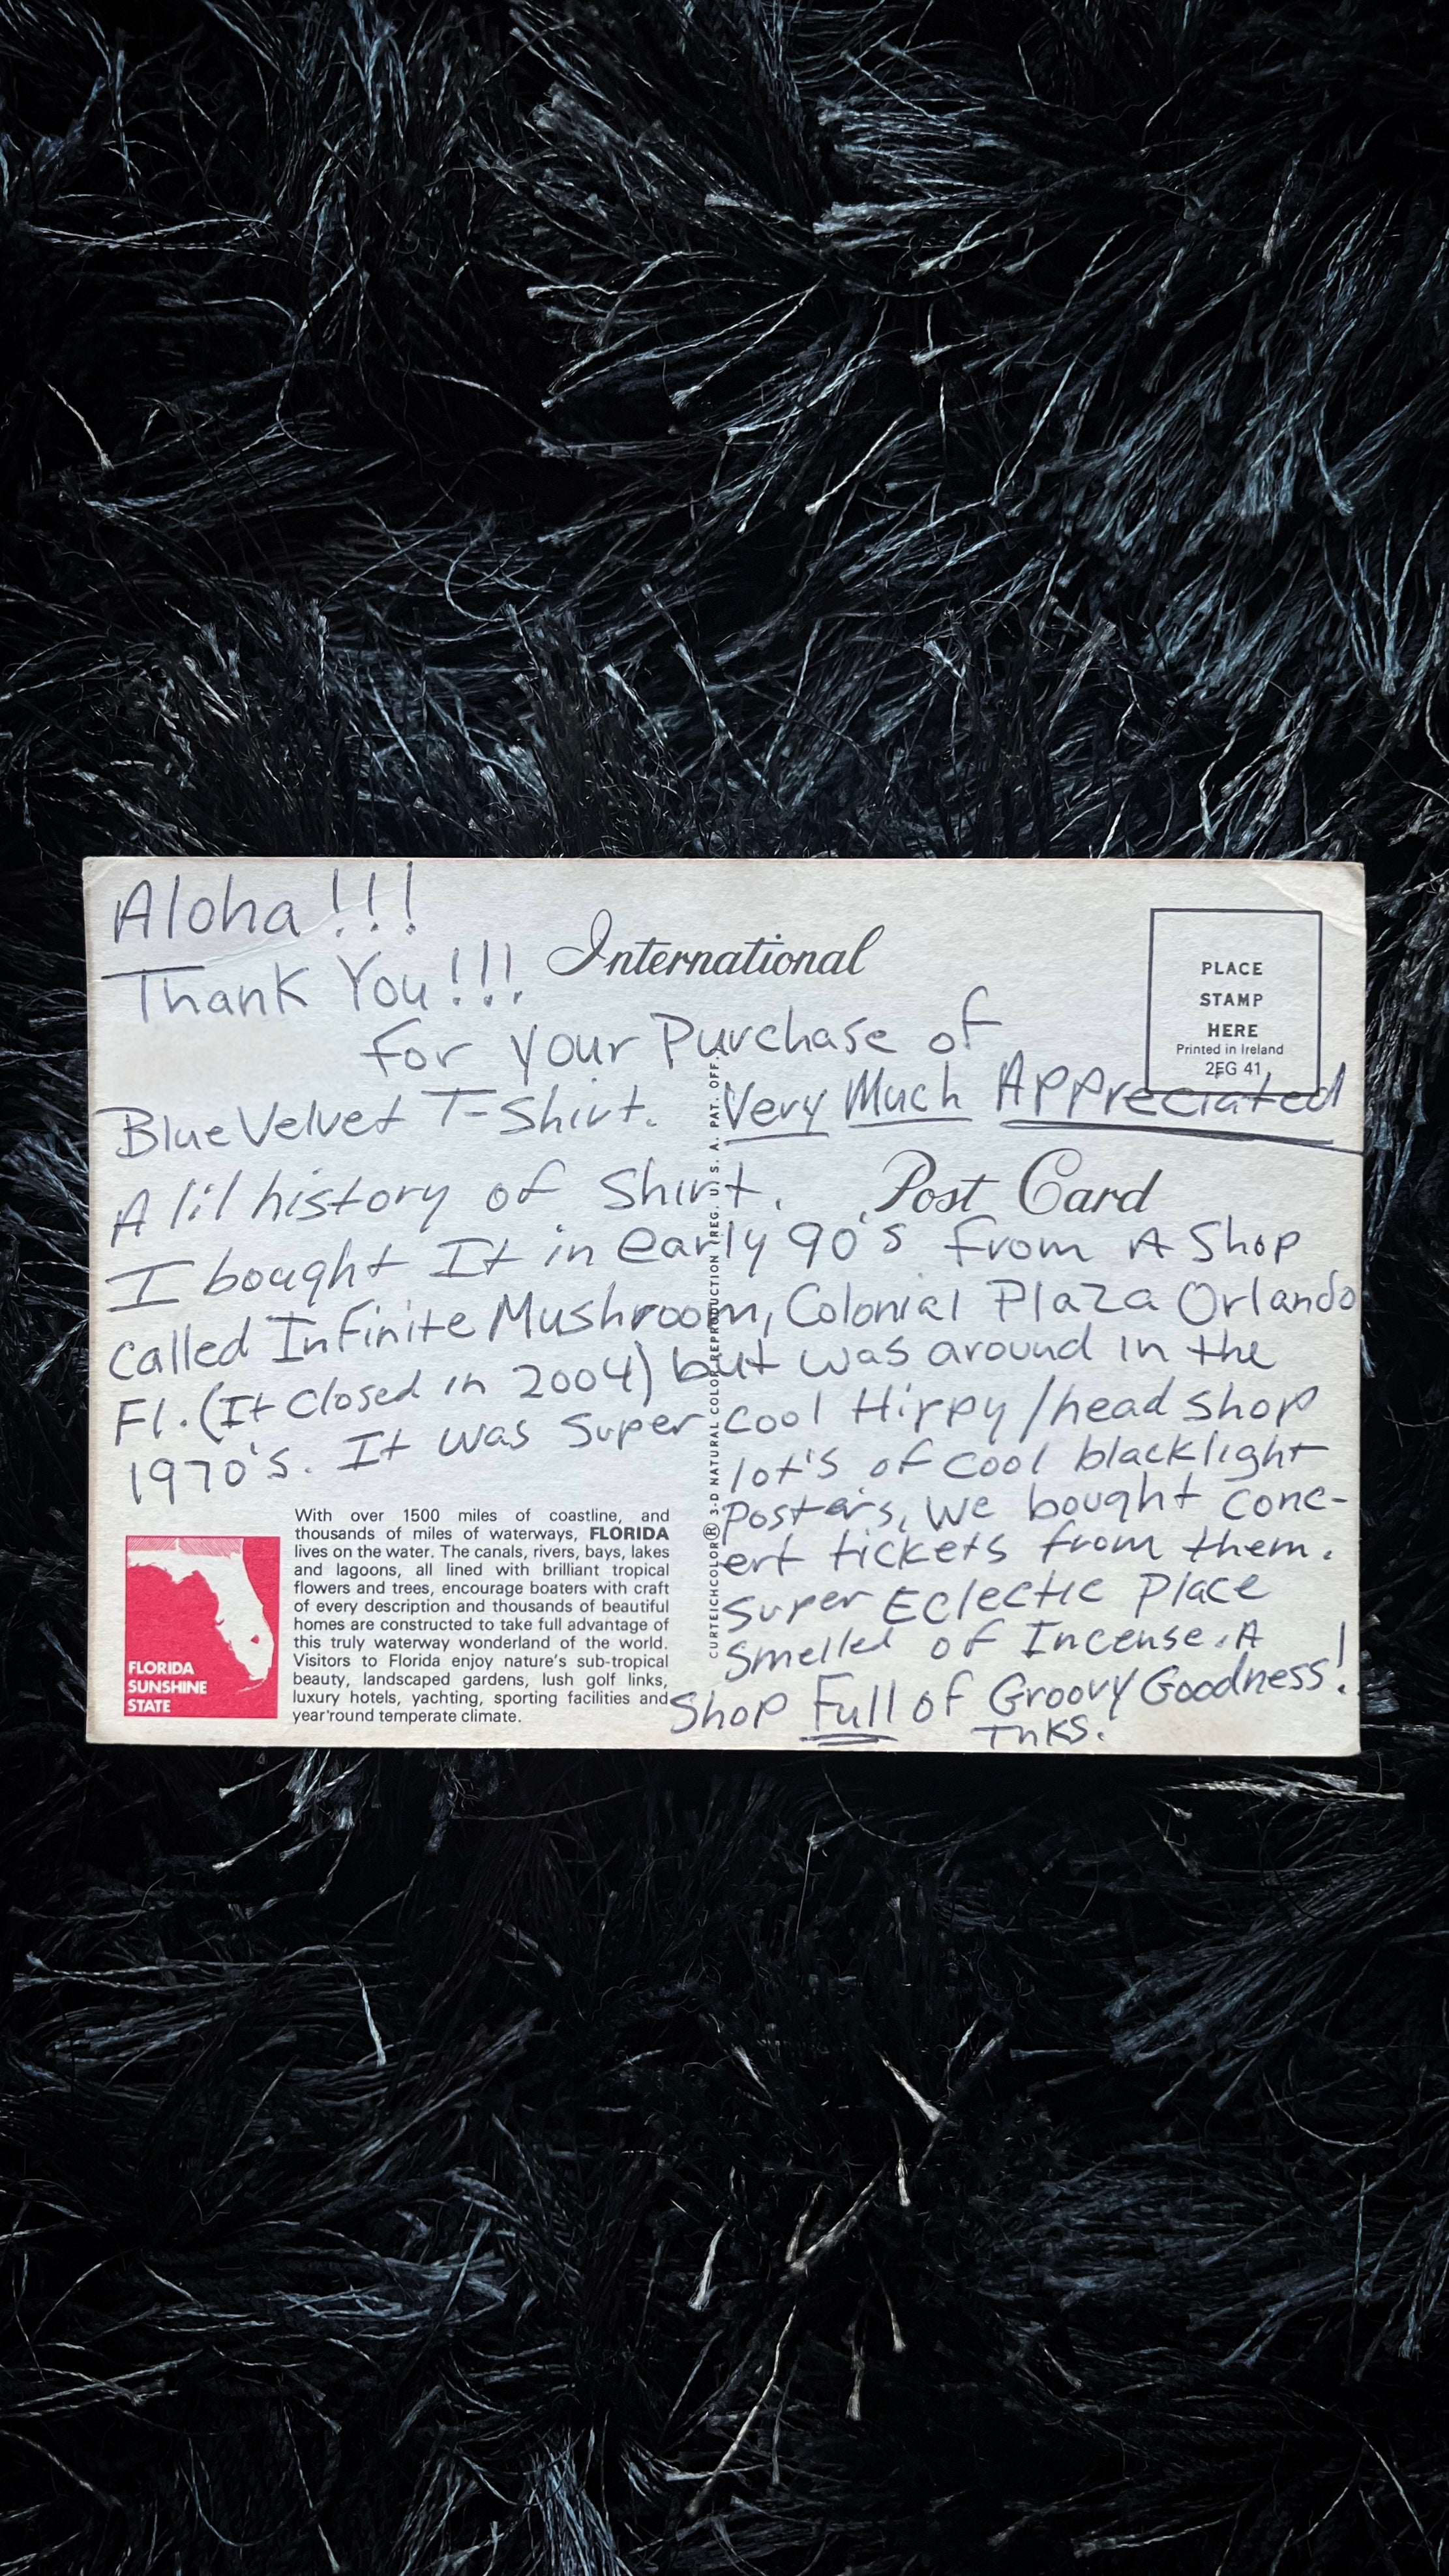 Aloha!!!
International
Thank You!!!
for your Purchase of
Blue Velvet T-Shirt. Very Much Appreciated
PLACE
STAMP
HERE
Printed in Ireland
2EG 41
Post Card
A lil history of Shirt.
I bought It in early 90's from A Shop
called Infinite Mushroom, Colonial Plaza Orlando
Fl. (It closed in 2004) but was around in the
1970's. It was super cool Hippy/head shop
lot's of cool blacklight
Posters, we bought conc-
ert tickets from them.
Super Eclectic Place
Smelled of Incense. A
Shop Full of Groovy Goodness!
Thks.
With over 1500 miles of coastline, and
thousands of miles of waterways, FLORIDA
lives on the water. The canals, rivers, bays, lakes
and lagoons, all lined with brilliant tropical
flowers and trees, encourage boaters with craft
of every description and thousands of beautiful
homes are constructed to take full advantage of
this truly waterway wonderland of the world.
Visitors to Florida enjoy nature's sub-tropical
beauty, landscaped gardens, lush golf links,
luxury hotels, yachting, sporting facilities and
year'round temperate climate.
FLORIDA
SUNSHINE
STATE
CURTEICHCOLOR® 3-D NATURAL COLOR REPRODUCTION (REG. U.S.A. PAT. OFF.)